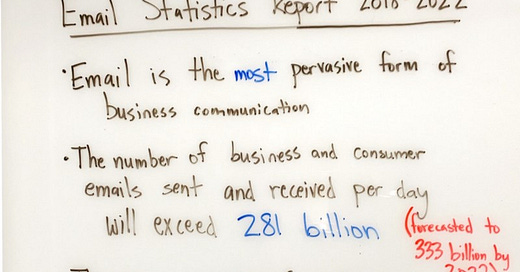 Email Statistics Report 2018 2022
·Email is the most pervasive form of
business communication
·The number of business and consumer
emails sent and received per day
will exceed 281 billion
(forecasted to
333 billion by
2022)